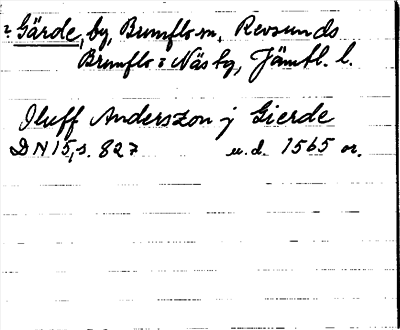 Gärde, by, Brunflo sn, Revsunds
Brunflo o Näs tg, Jämtl. l.
Iluff Anderszon j Gierde
DN 15, s. 827 u.d. 1565 or.